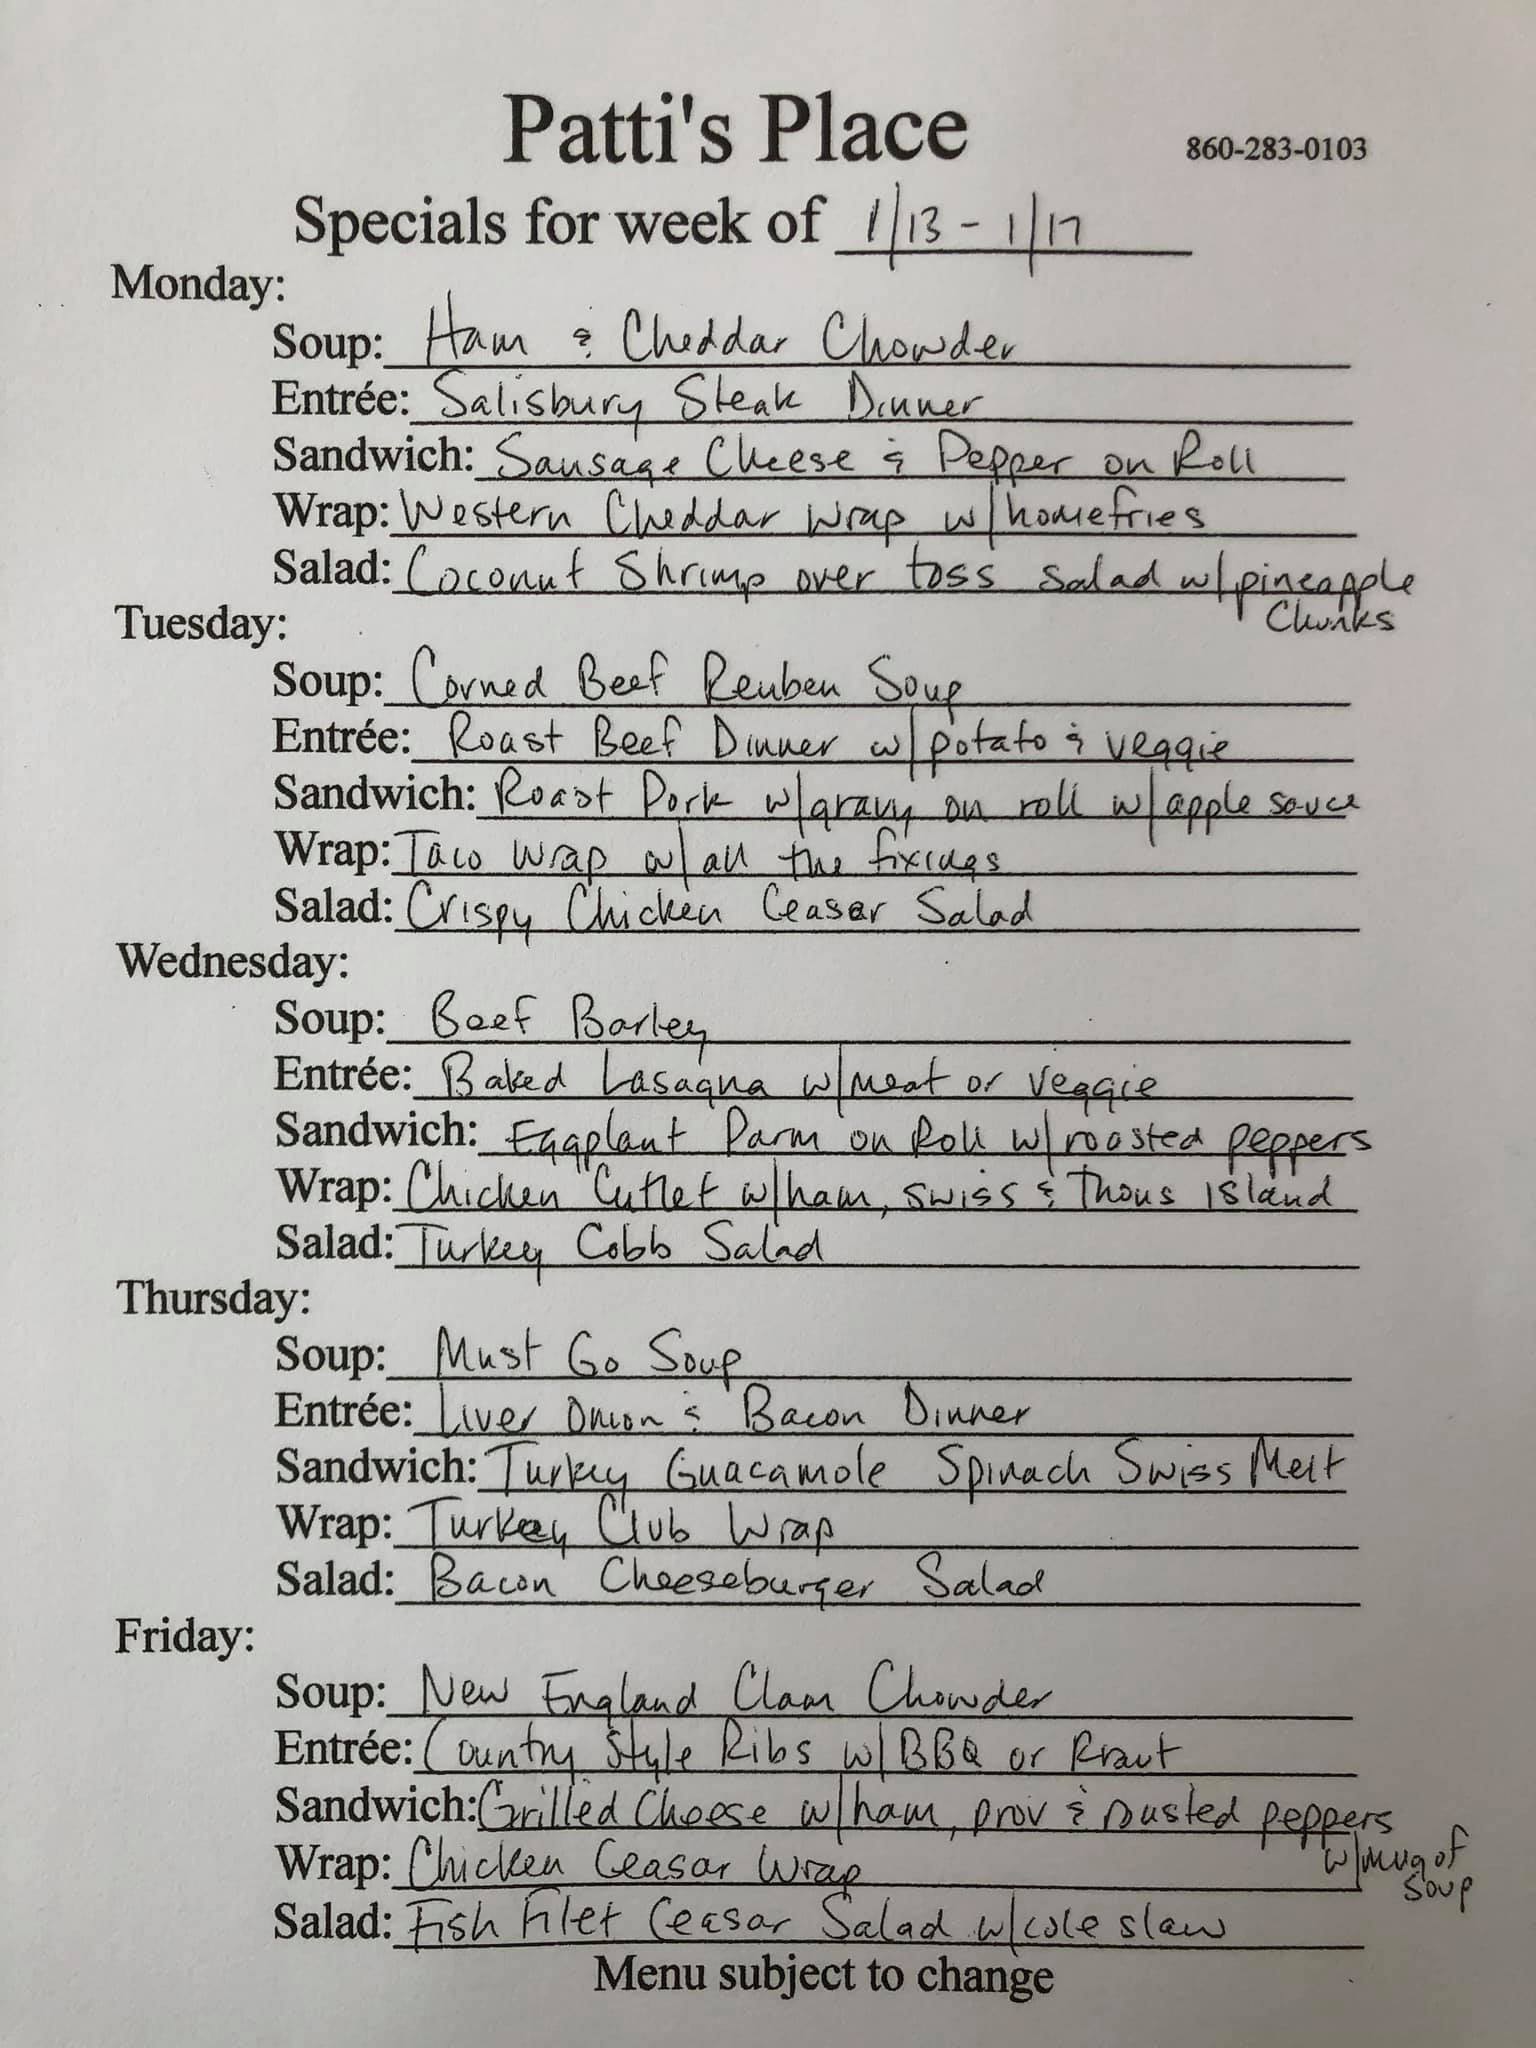 Patti's Place 860-283-0103
Specials for week of 1/13 - 1/17
Monday:
Soup: Ham & Cheddar Chowder
Entrée: Salisbury Steak Dinner
Sandwich: Sausage Cheese & Pepper on Roll
Wrap: Western Cheddar Wrap w/homefries
Salad: Coconut Shrimp over toss salad w/pineapple
Chunks
Tuesday:
Soup: Corned Beef Reuben Soup
Entrée: Roast Beef Dinner w/potato & veggie
Sandwich: Roast Pork w/gravy on roll w/apple sauce
Wrap: Taco Wrap w/all the fixings
Salad: Crispy Chicken Ceasar Salad
Wednesday:
Soup: Beef Barley
Entrée: Baked Lasagna w/meat or veggie
Sandwich: Eggplant Parm on Roll w/roasted peppers
Wrap: Chicken Cutlet w/ham, swiss & Thous Island
Salad: Turkey Cobb Salad
Thursday:
Soup: Must Go Soup
Entrée: Liver Onion & Bacon Dinner
Sandwich: Turkey Guacamole Spinach Swiss Melt
Wrap: Turkey Club Wrap
Salad: Bacon Cheeseburger Salad
Friday:
Soup: New England Clam Chowder
Entrée: Country Style Ribs w/BBQ or Kraut
Sandwich: Grilled Cheese w/ham, prov & roasted peppers
w/mug of
soup
Wrap: Chicken Ceasar Wrap
Salad: Fish Filet Ceasar Salad w/cole slaw
Menu subject to change